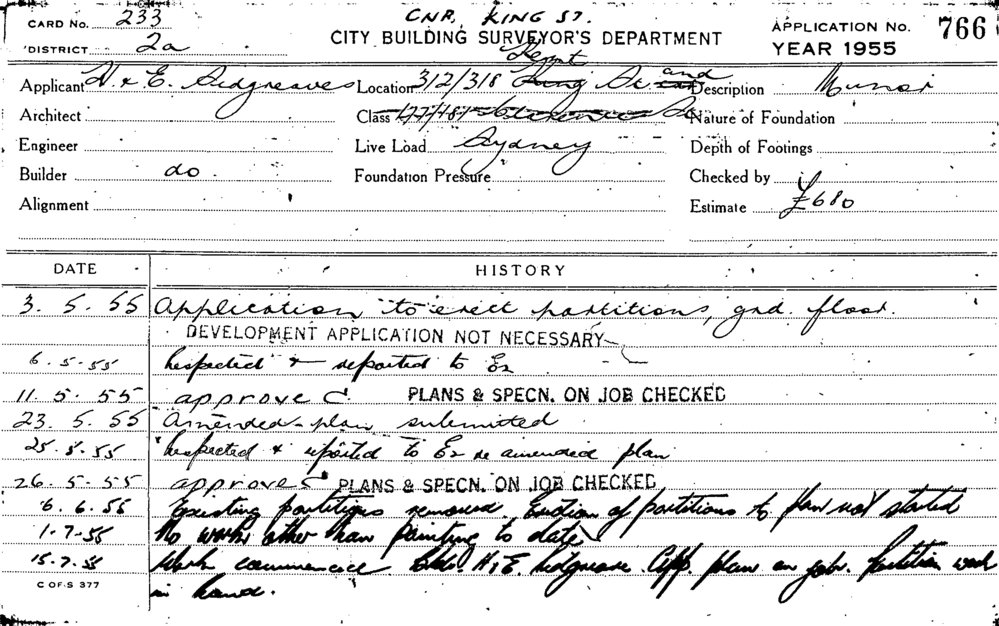 CARD No. 233
CNR. KING ST.
APPLICATION No. 766
DISTRICT 2a
CITY BUILDING SURVEYOR'S DEPARTMENT
YEAR 1955
Kent
Applicant H & E. Sidgreaves Location 312/318 King St. and Description Minor
Architect Class 177/181 Clarence St Nature of Foundation
Engineer Live Load Sydney Depth of Footings
Builder do. Foundation Pressure Checked by
Alignment Estimate £680
DATE HISTORY
3. 5. 55 Application to erect partitions, gnd. floor.
DEVELOPMENT APPLICATION NOT NECESSARY
6. 5. 55 Inspected & reported to Ex
11. 5. 55 approved PLANS & SPECN. ON JOB CHECKED
23. 5. 55 Amended plan submitted
25. 5. 55 Inspected & reported to Ex re amended plan
26. 5. 55 approved PLANS & SPECN. ON JOB CHECKED
6. 6. 55 Existing partitions removed. Erection of partitions to plan not started
1. 7. 55 No work other than painting to date
15. 7. 55 Work commenced. Bldr. H & E. Sidgreave. App. plan on job. Partition work
C OF S 377
in hand.